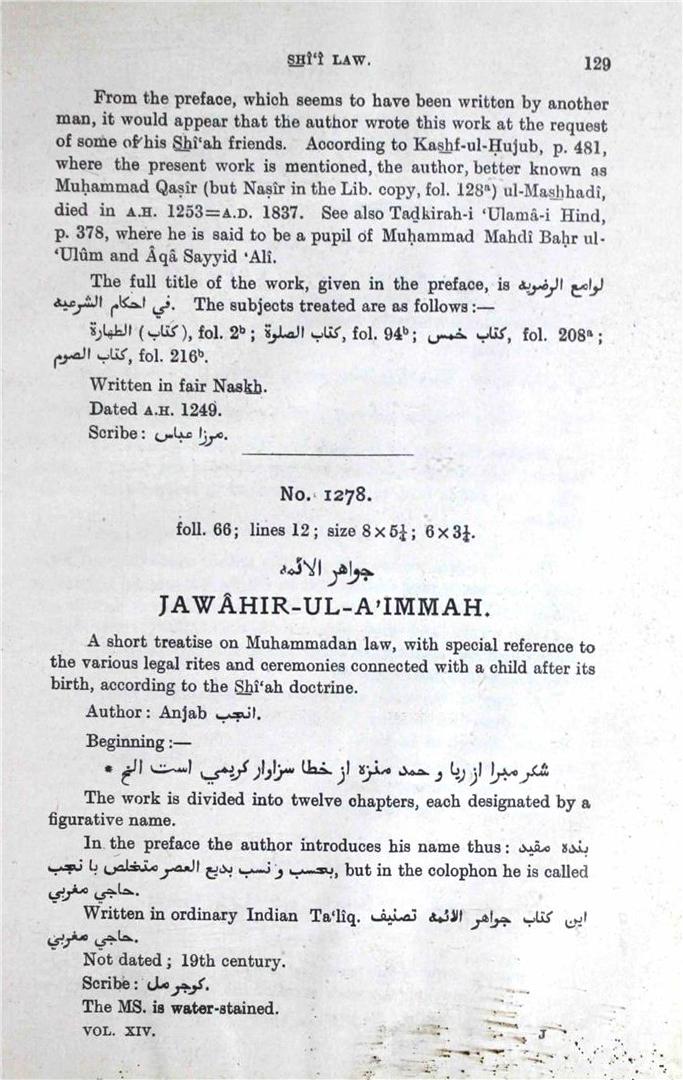 SHÎ‘Î LAW. 129
From the preface, which seems to have been written by another
man, it would appear that the author wrote this work at the request
of some of his Shî‘ah friends. According to Kashf-ul-Ḥujub, p. 481,
where the present work is mentioned, the author, better known as
Muḥammad Qaṣîr (but Naṣîr in the Lib. copy, fol. 128ᵃ) ul-Mashhadî,
died in A.H. 1253=A.D. 1837. See also Taḏkirah-i ‘Ulamâ-i Hind,
p. 378, where he is said to be a pupil of Muḥammad Mahdî Baḥr ul-
‘Ulûm and Âqâ Sayyid ‘Alî.
The full title of the work, given in the preface, is لوامع الرضويه
في احكام الشرعيه. The subjects treated are as follows :—
(كتاب) الطهارة, fol. 2ᵇ ; كتاب الصلوة, fol. 94ᵇ; كتاب خمس, fol. 208ᵃ ;
كتاب الصوم, fol. 216ᵇ.
Written in fair Naskh.
Dated A.H. 1249.
Scribe : مرزا عباس.
No. 1278.
foll. 66; lines 12 ; size 8×5¼ ; 6×3¼.
جواهر الائمه
JAWÂHIR-UL-A’IMMAH.
A short treatise on Muhammadan law, with special reference to
the various legal rites and ceremonies connected with a child after its
birth, according to the Shî‘ah doctrine.
Author : Anjab انجب.
Beginning :—
شكر مبرا از ريا و حمد منزه از خطا سزاوار كريمي است الخ *
The work is divided into twelve chapters, each designated by a
figurative name.
In the preface the author introduces his name thus : بنده مقيد
بحسب و نسب بديع العصر متخلص با نجب, but in the colophon he is called
حاجي مغربي.
Written in ordinary Indian Ta‘lîq. اين كتاب جواهر الائمه تصنيف
حاجي مغربي.
Not dated ; 19th century.
Scribe : كوجر مل.
The MS. is water-stained.
VOL. XIV. J